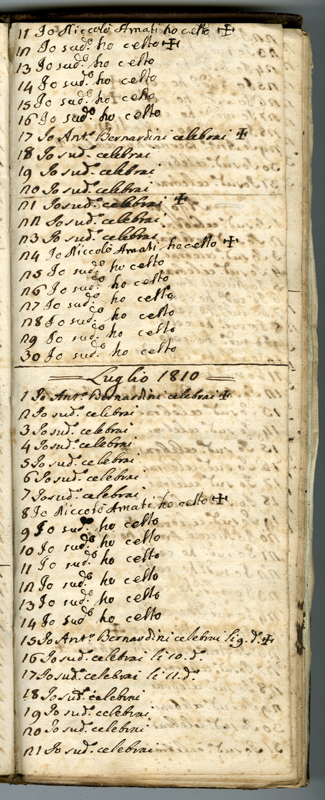 11 Io Niccolò Amati ho celto ✠
12 Io sud.º ho celto ✠
13 Io sud.º ho celto
14 Io sud.º ho celto
15 Io sud.º ho celto
16 Io sud.º ho celto
17 Io Ant.º Bernardini celebrai ✠
18 Io sud.º celebrai
19 Io sud.º celebrai
20 Io sud.º celebrai
21 Io sud.º celebrai ✠
22 Io sud.º celebrai
23 Io sud.º celebrai
24 Io Niccolò Amati ho celto ✠
25 Io sud.º ho celto
26 Io sud.º ho celto
27 Io sud.º ho celto
28 Io sud.º ho celto
29 Io sud.º ho celto
30 Io sud.º ho celto
Luglio 1810
1 Io Ant.º Bernardini celebrai ✠
2 Io sud.º celebrai
3 Io sud.º celebrai
4 Io sud.º celebrai
5 Io sud.º celebrai
6 Io sud.º celebrai
7 Io sud.º celebrai
8 Io Niccolò Amati ho celto ✠
9 Io sud.º ho celto
10 Io sud.º ho celto
11 Io sud.º ho celto
12 Io sud.º ho celto
13 Io sud.º ho celto
14 Io sud.º ho celto
15 Io Ant.º Bernardini celebrai li 9. d.º ✠
16 Io sud.º celebrai li 10. d.º
17 Io sud.º celebrai li 11. d.º
18 Io sud.º celebrai
19 Io sud.º celebrai
20 Io sud.º celebrai
21 Io sud.º celebrai